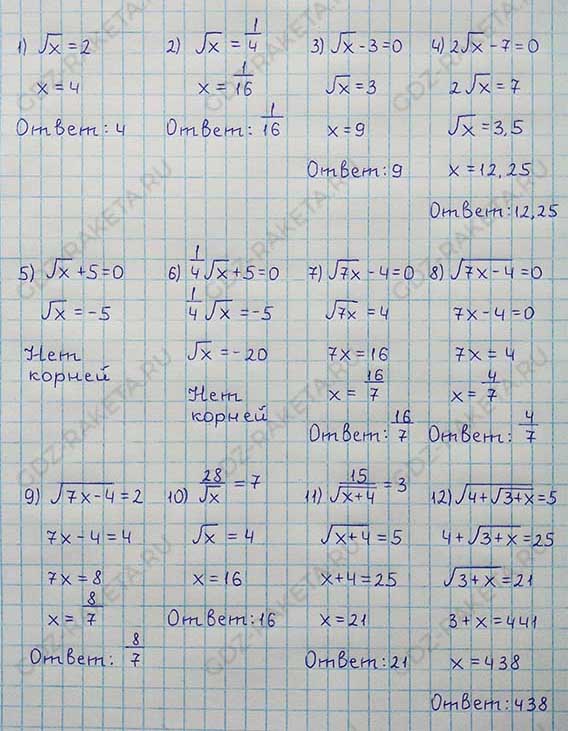 1) √x = 2
x = 4
Ответ: 4
2) √x = 1/4
x = 1/16
Ответ: 1/16
3) √x - 3 = 0
√x = 3
x = 9
Ответ: 9
4) 2√x - 7 = 0
2√x = 7
√x = 3,5
x = 12,25
Ответ: 12,25
5) √x + 5 = 0
√x = -5
Нет
корней
6) 1/4 √x + 5 = 0
1/4 √x = -5
√x = -20
Нет
корней
7) √7x - 4 = 0
√7x = 4
7x = 16
x = 16/7
Ответ: 16/7
8) √(7x - 4) = 0
7x - 4 = 0
7x = 4
x = 4/7
Ответ: 4/7
9) √(7x - 4) = 2
7x - 4 = 4
7x = 8
x = 8/7
Ответ: 8/7
10) 28/√x = 7
√x = 4
x = 16
Ответ: 16
11) 15/√(x + 4) = 3
√(x + 4) = 5
x + 4 = 25
x = 21
Ответ: 21
12) √(4 + √(3 + x)) = 5
4 + √(3 + x) = 25
√(3 + x) = 21
3 + x = 441
x = 438
Ответ: 438
GDZ-RAKETA.RU